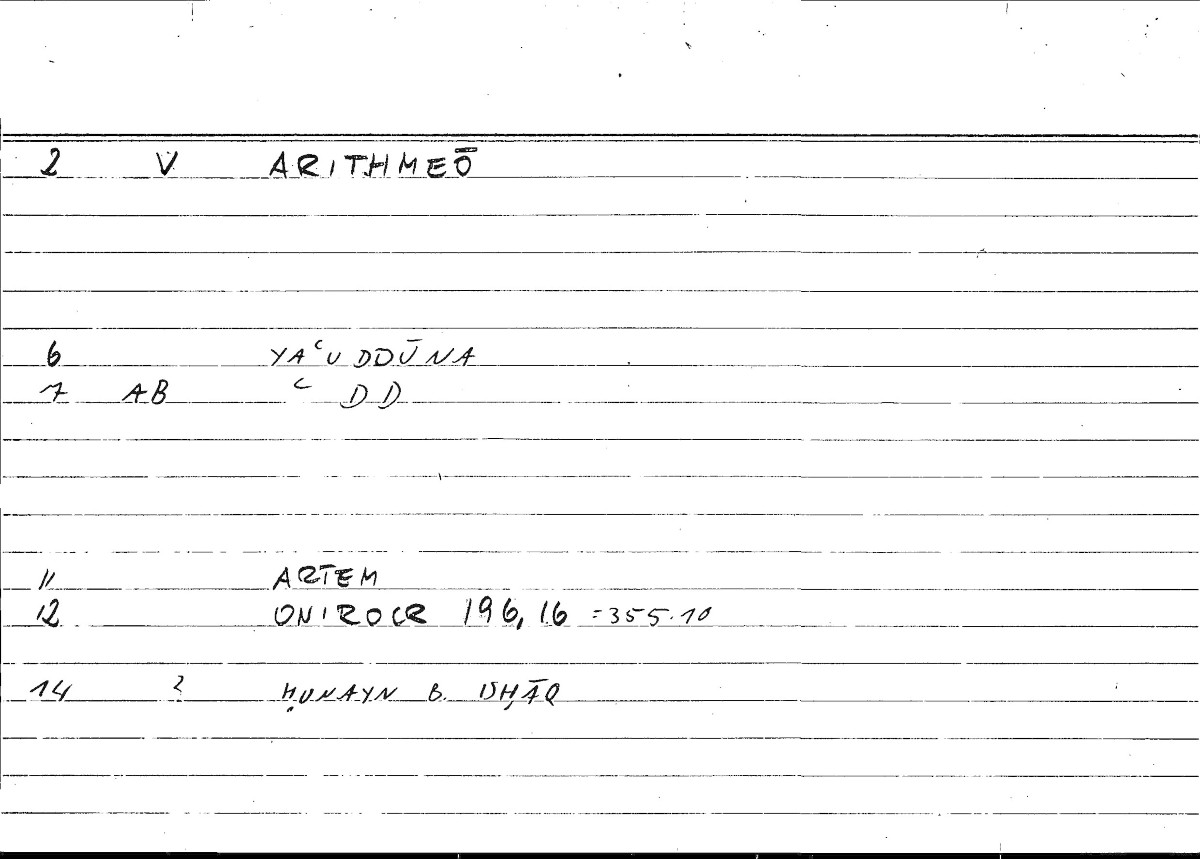 2 V ARITHMEŌ
6 YAʿUDDŪNA
7 AB ʿ DD
11 ARTEM
12 ONIROCR 196,16 =355.10
14 2 ḤUNAYN B. ISḤĀQ